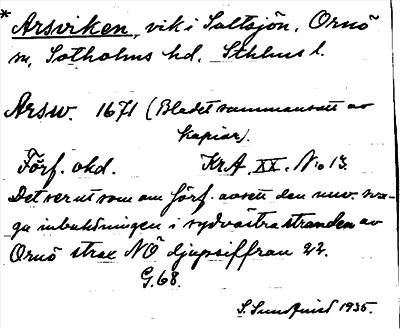 * Arsviken, vik i Saltsjön, Ornö
sn, Sotholms hd, Sthlms l.
Arsw. 1671 (Bladet sammansatt av
kopior).
Förf. okd. Kr.A. XX. No 13.
Det ser ut som om förf. avsett den nuv. sva-
ga inbuktningen i sydvästra stranden av
Ornö strax NÖ djupsiffran 22.
G.68.
S. Sundquist 1935.